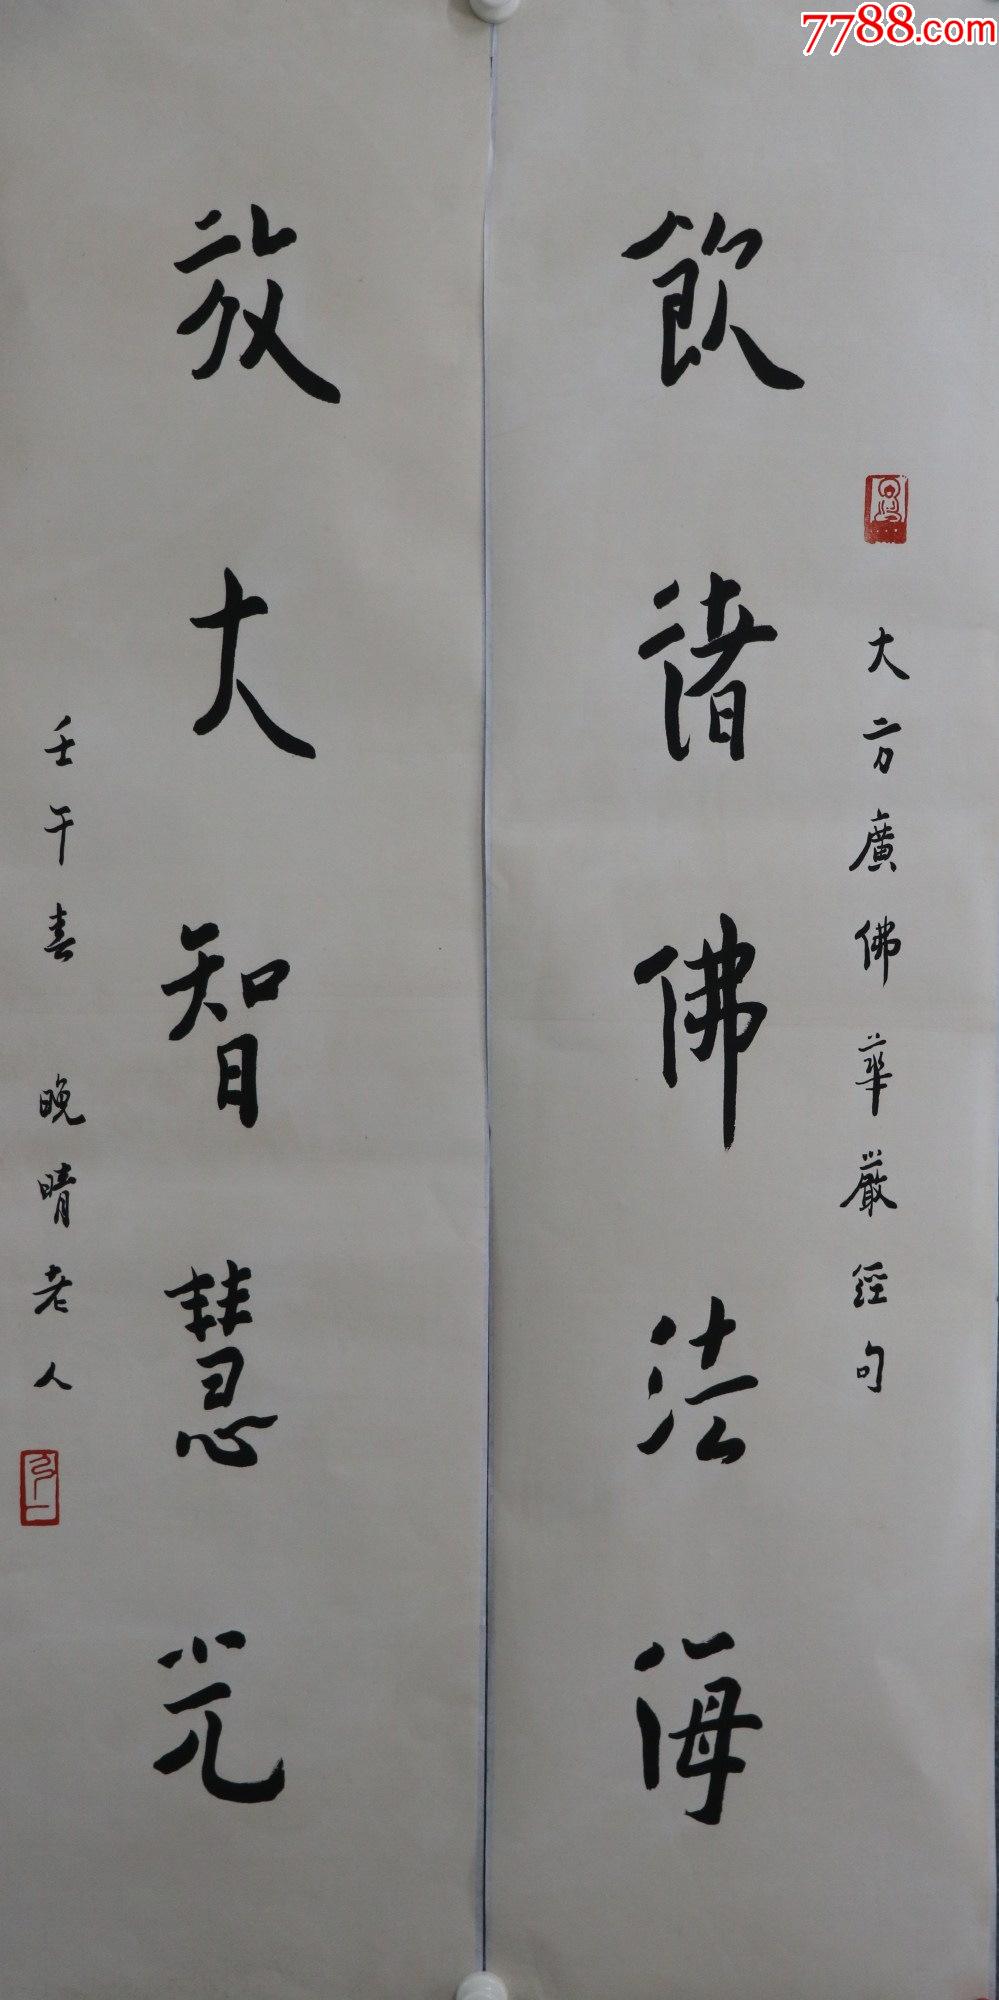 7788.com
大方廣佛華嚴經句
飲諸佛法海
放大智慧光
壬午春 晚晴老人